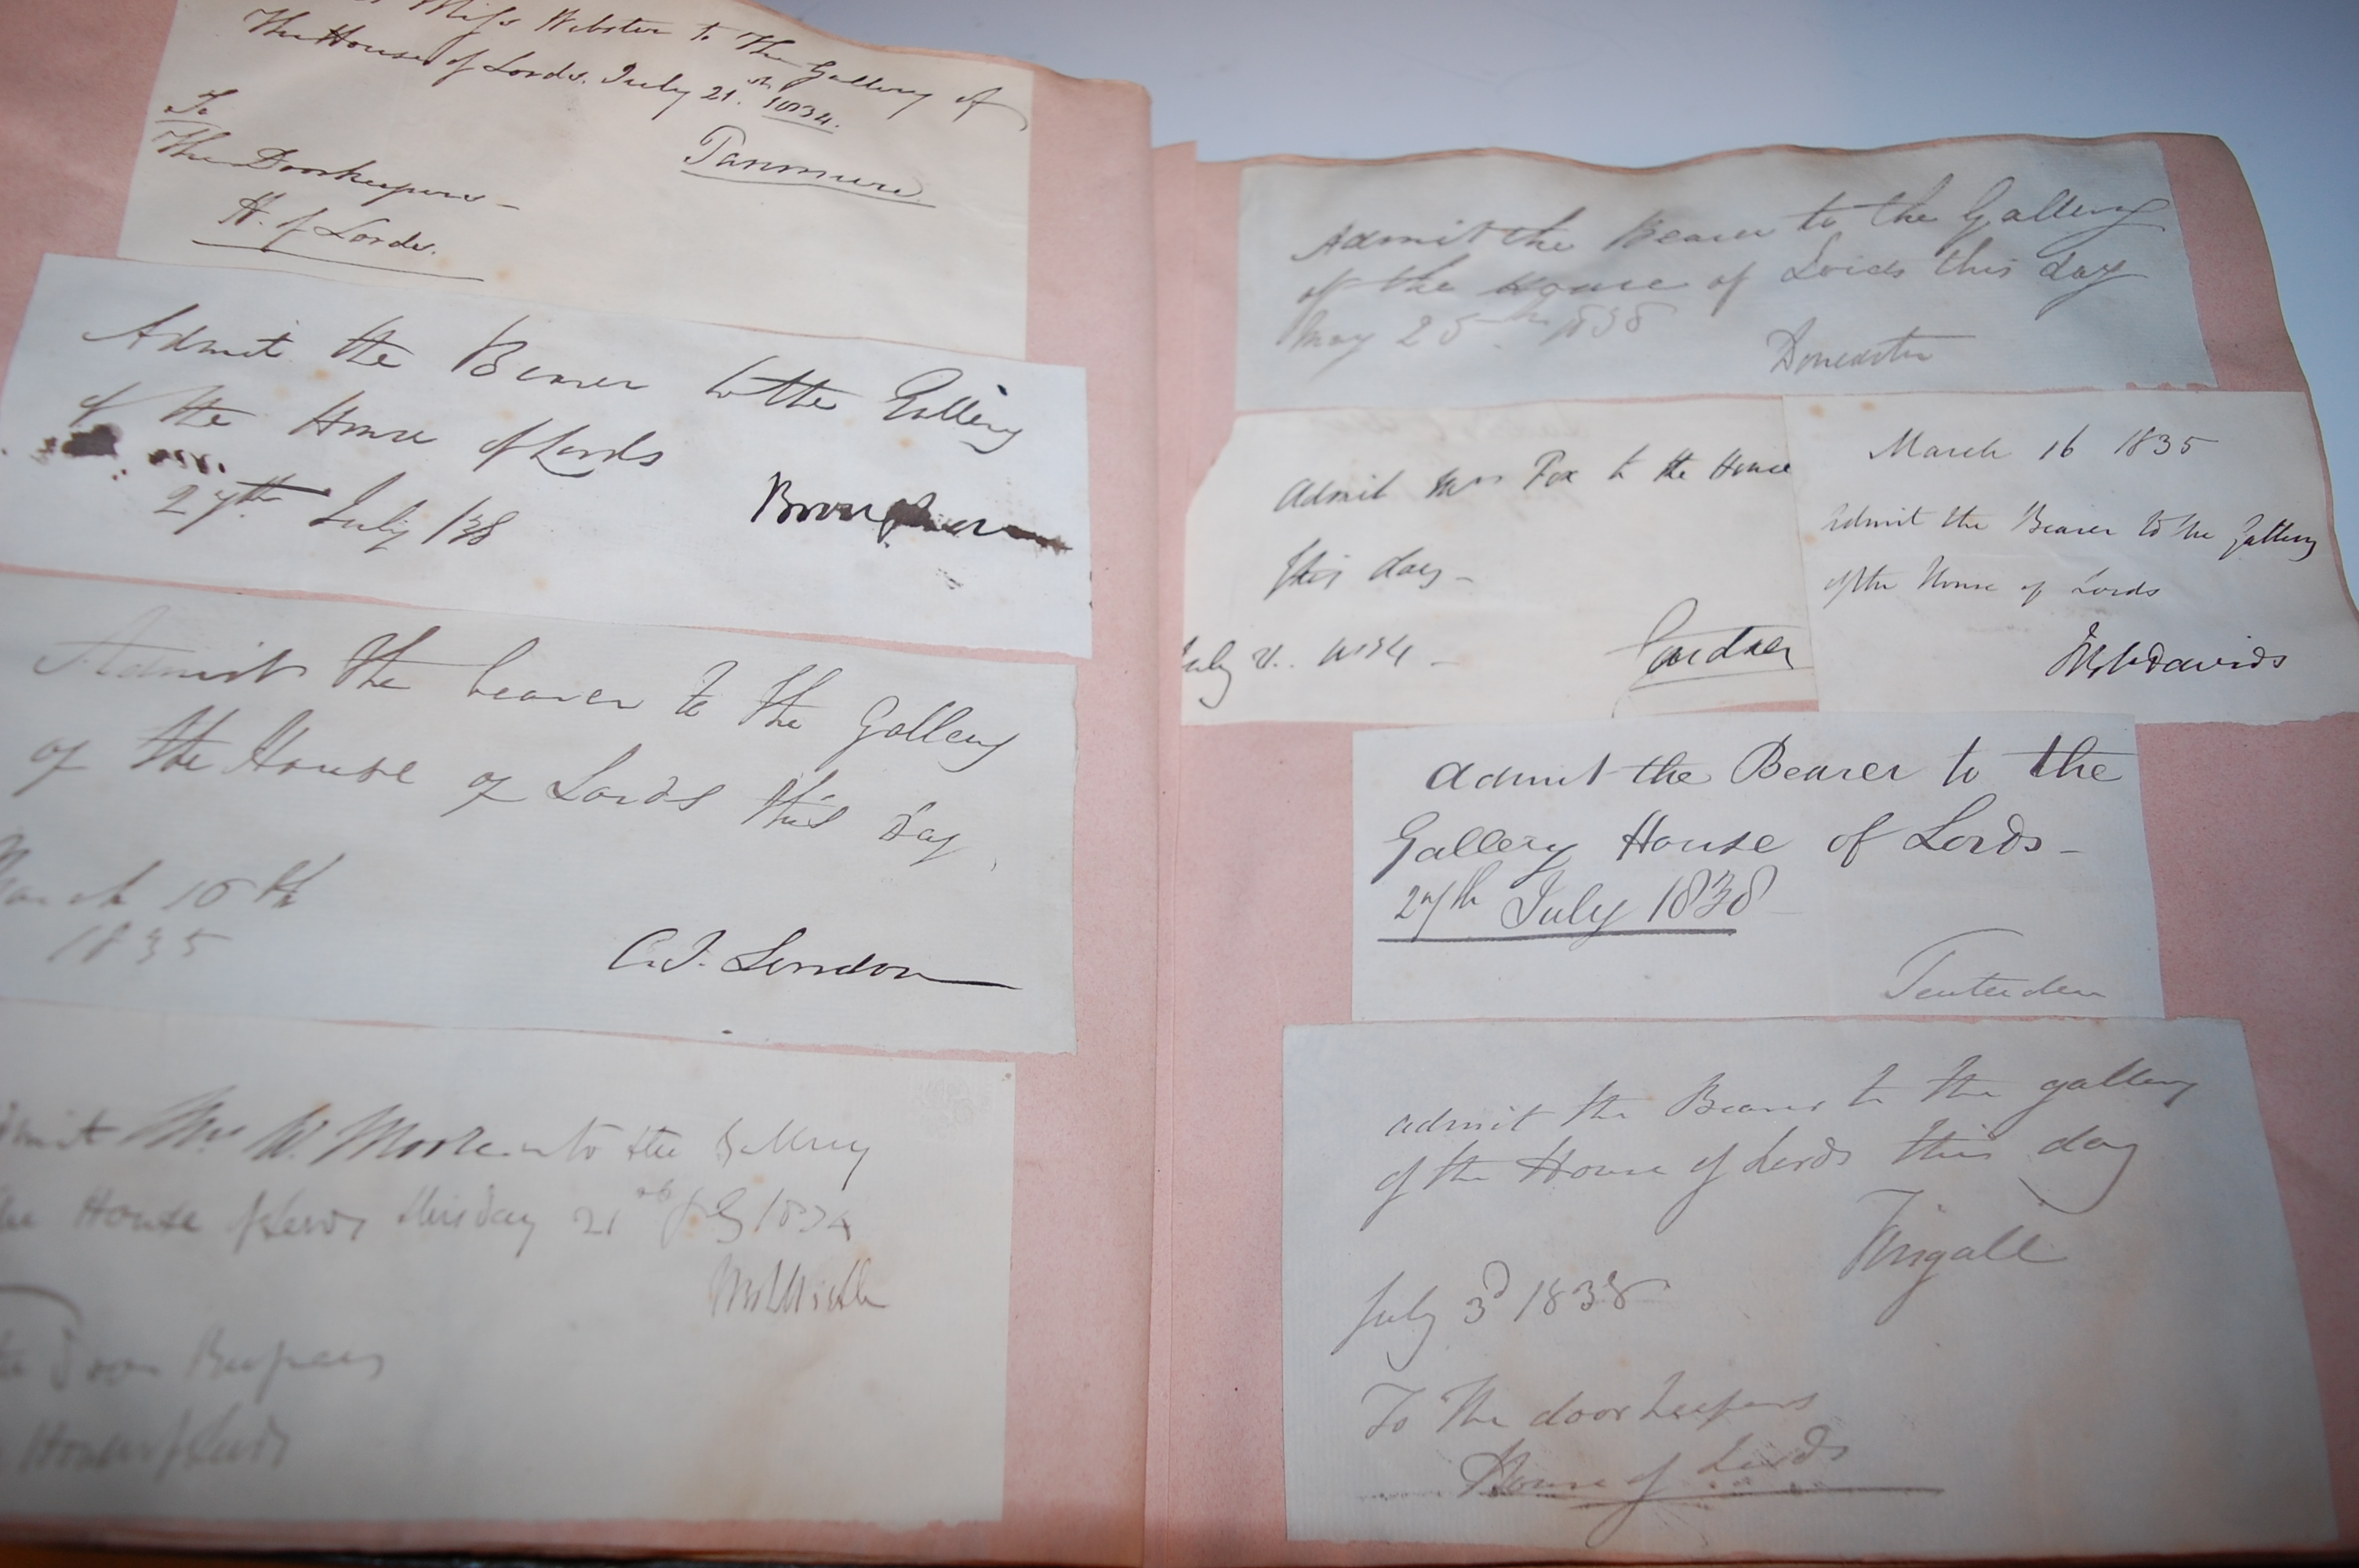 Miss Webster to The Gallery of
The House of Lords. July 21.st 1834.
To
The Doorkeepers -
H. of Lords.
Panmure
Admit the Bearer to the Gallery
of the House of Lords
27th July /38
Brougham
Admit the bearer to the Gallery
of the House of Lords this day,
March 16th
1835
C.J. London
Mrs W. Moore to the Gallery
House of Lords this day 21st July 1834
Door Keepers
House of Lords
Admit the Bearer to the Gallery
of the House of Lords this day
May 25th 1838
Doncaster
Admit Mrs Fox to the House
this day -
July 21. 1834 -
Gardner
March 16 1835
Admit the Bearer to the Gallery
of the House of Lords
Admit the Bearer to the
Gallery House of Lords -
27th July 1838
Tenterden
admit the Bearer to the gallery
of the House of Lords this day
Fingall
July 3d 1838
To The doorkeepers
House of Lords